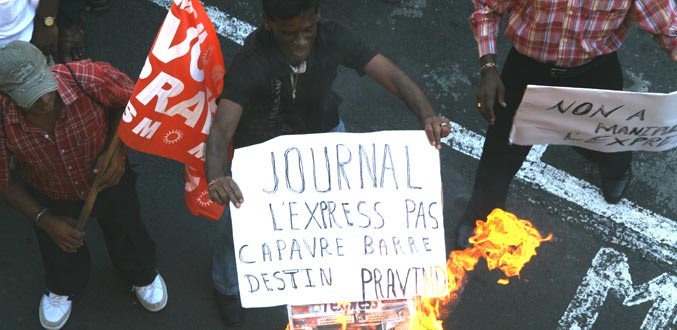 JOURNAL
L'EXPRESS PAS
CAPAVRE BARRE
DESTIN PRAVIND
NON A
MANIPUL
L'EXPRE
SM